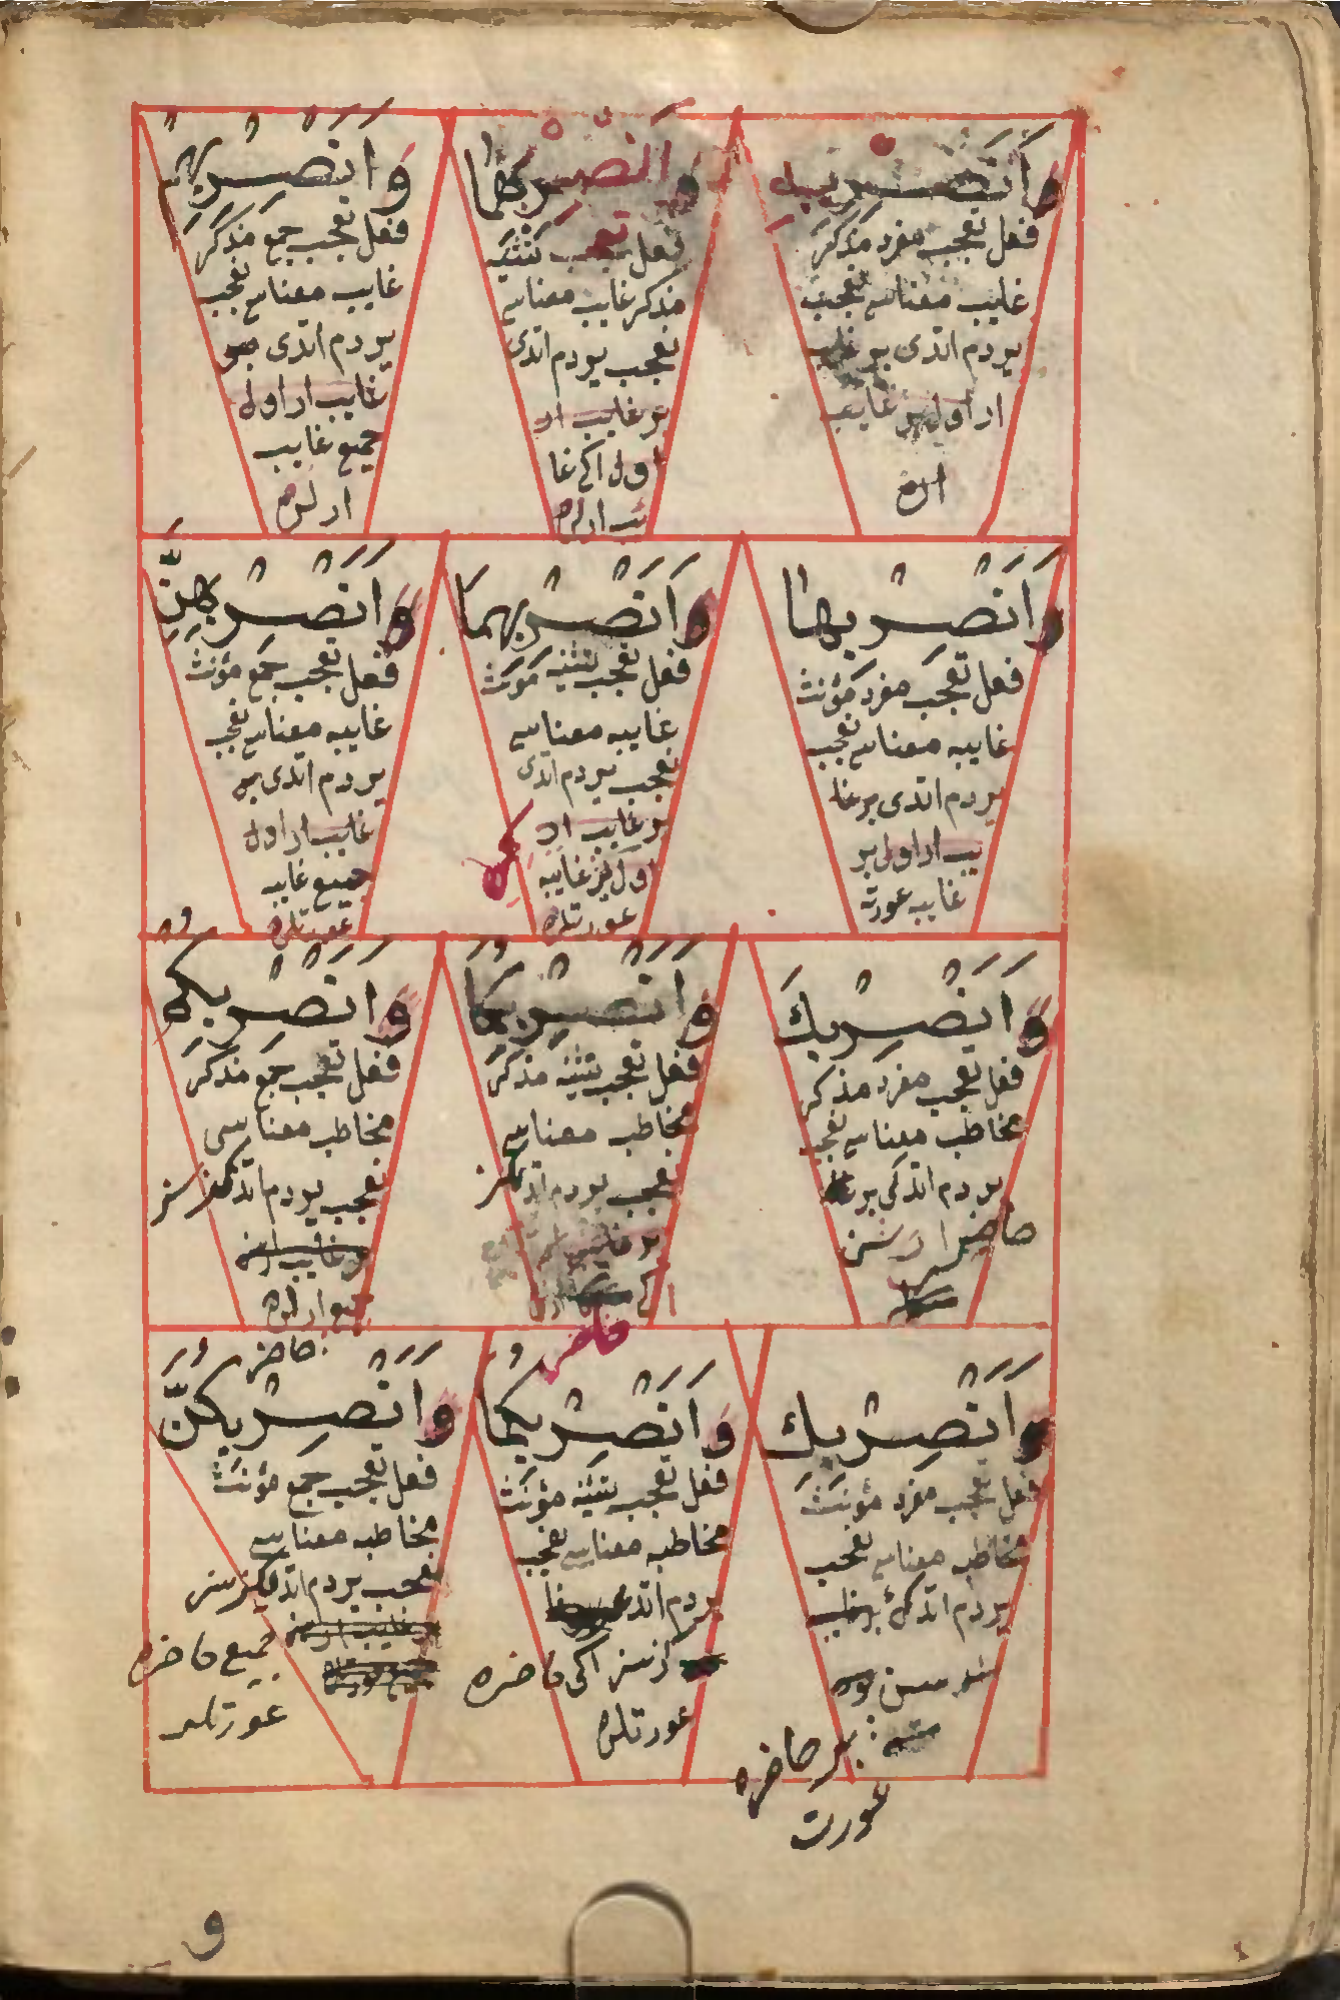 وَاَنْصِرْ بِهِ
فعل تعجب مفرد مذكر
غايب معناسى تعجب
يردم اتدى بر غايب
ار اول بر غايب
اره
وَاَنْصِرْ بِهِمَا
فعل تعجب تثنيه
مذكر غايب معناسى
تعجب يردم اتدى
بر غايب ار
اول اكى غا
يب ارلره
وَاَنْصِرْ بِهِمْ
فعل تعجب جمع مذكر
غايب معناسى تعجب
يردم اتدى بر
غايب ار اول
جميع غايب
ارلره
وَاَنْصِرْ بِهَا
فعل تعجب مفرد مؤنث
غايبه معناسى تعجب
يردم اتدى بر غا
يب ار اول بر
غايبه عورته
وَاَنْصِرْ بِهِمَا
فعل تعجب تثنيه مؤنث
غايبه معناسى
تعجب يردم اتدى
بر غايب ار
اول غايبه
عورتلره
وَاَنْصِرْ بِهِنَّ
فعل تعجب جمع مؤنث
غايبه معناسى تعجب
يردم اتدى بر
غايب ار اول
جميع غايبه
عورتلره
وَاَنْصِرْ بِكَ
فعل تعجب مفرد مذكر
مخاطب معناسى تعجب
يردم اتدكى بر
حاضر ار سن
وَاَنْصِرْ بِكُمَا
فعل تعجب تثنيه مذكر
مخاطب معناسى
تعجب يردم اتدكز
بر غايب ار
اكى
حاضر
وَاَنْصِرْ بِكُمْ
فعل تعجب جمع مذكر
مخاطب معناسى
تعجب يردم اتدكز سز
بر غايب ار
جميع ارلره
حاضر
وَاَنْصِرْ بِكِ
فعل تعجب مفرد مؤنث
مخاطبه معناسى تعجب
يردم اتدكى بر غايب
سن
بر حاضره
عورت
وَاَنْصِرْ بِكُمَا
فعل تعجب تثنيه مؤنث
مخاطبه معناسى تعجب
يردم اتدى
كز سز اكى حاضره
عورتلره
وَاَنْصِرْ بِكُنَّ
فعل تعجب جمع مؤنث
مخاطبه معناسى
تعجب يردم اتدكز سز
بر غايب ار
جميع حاضره
عورتلر
و